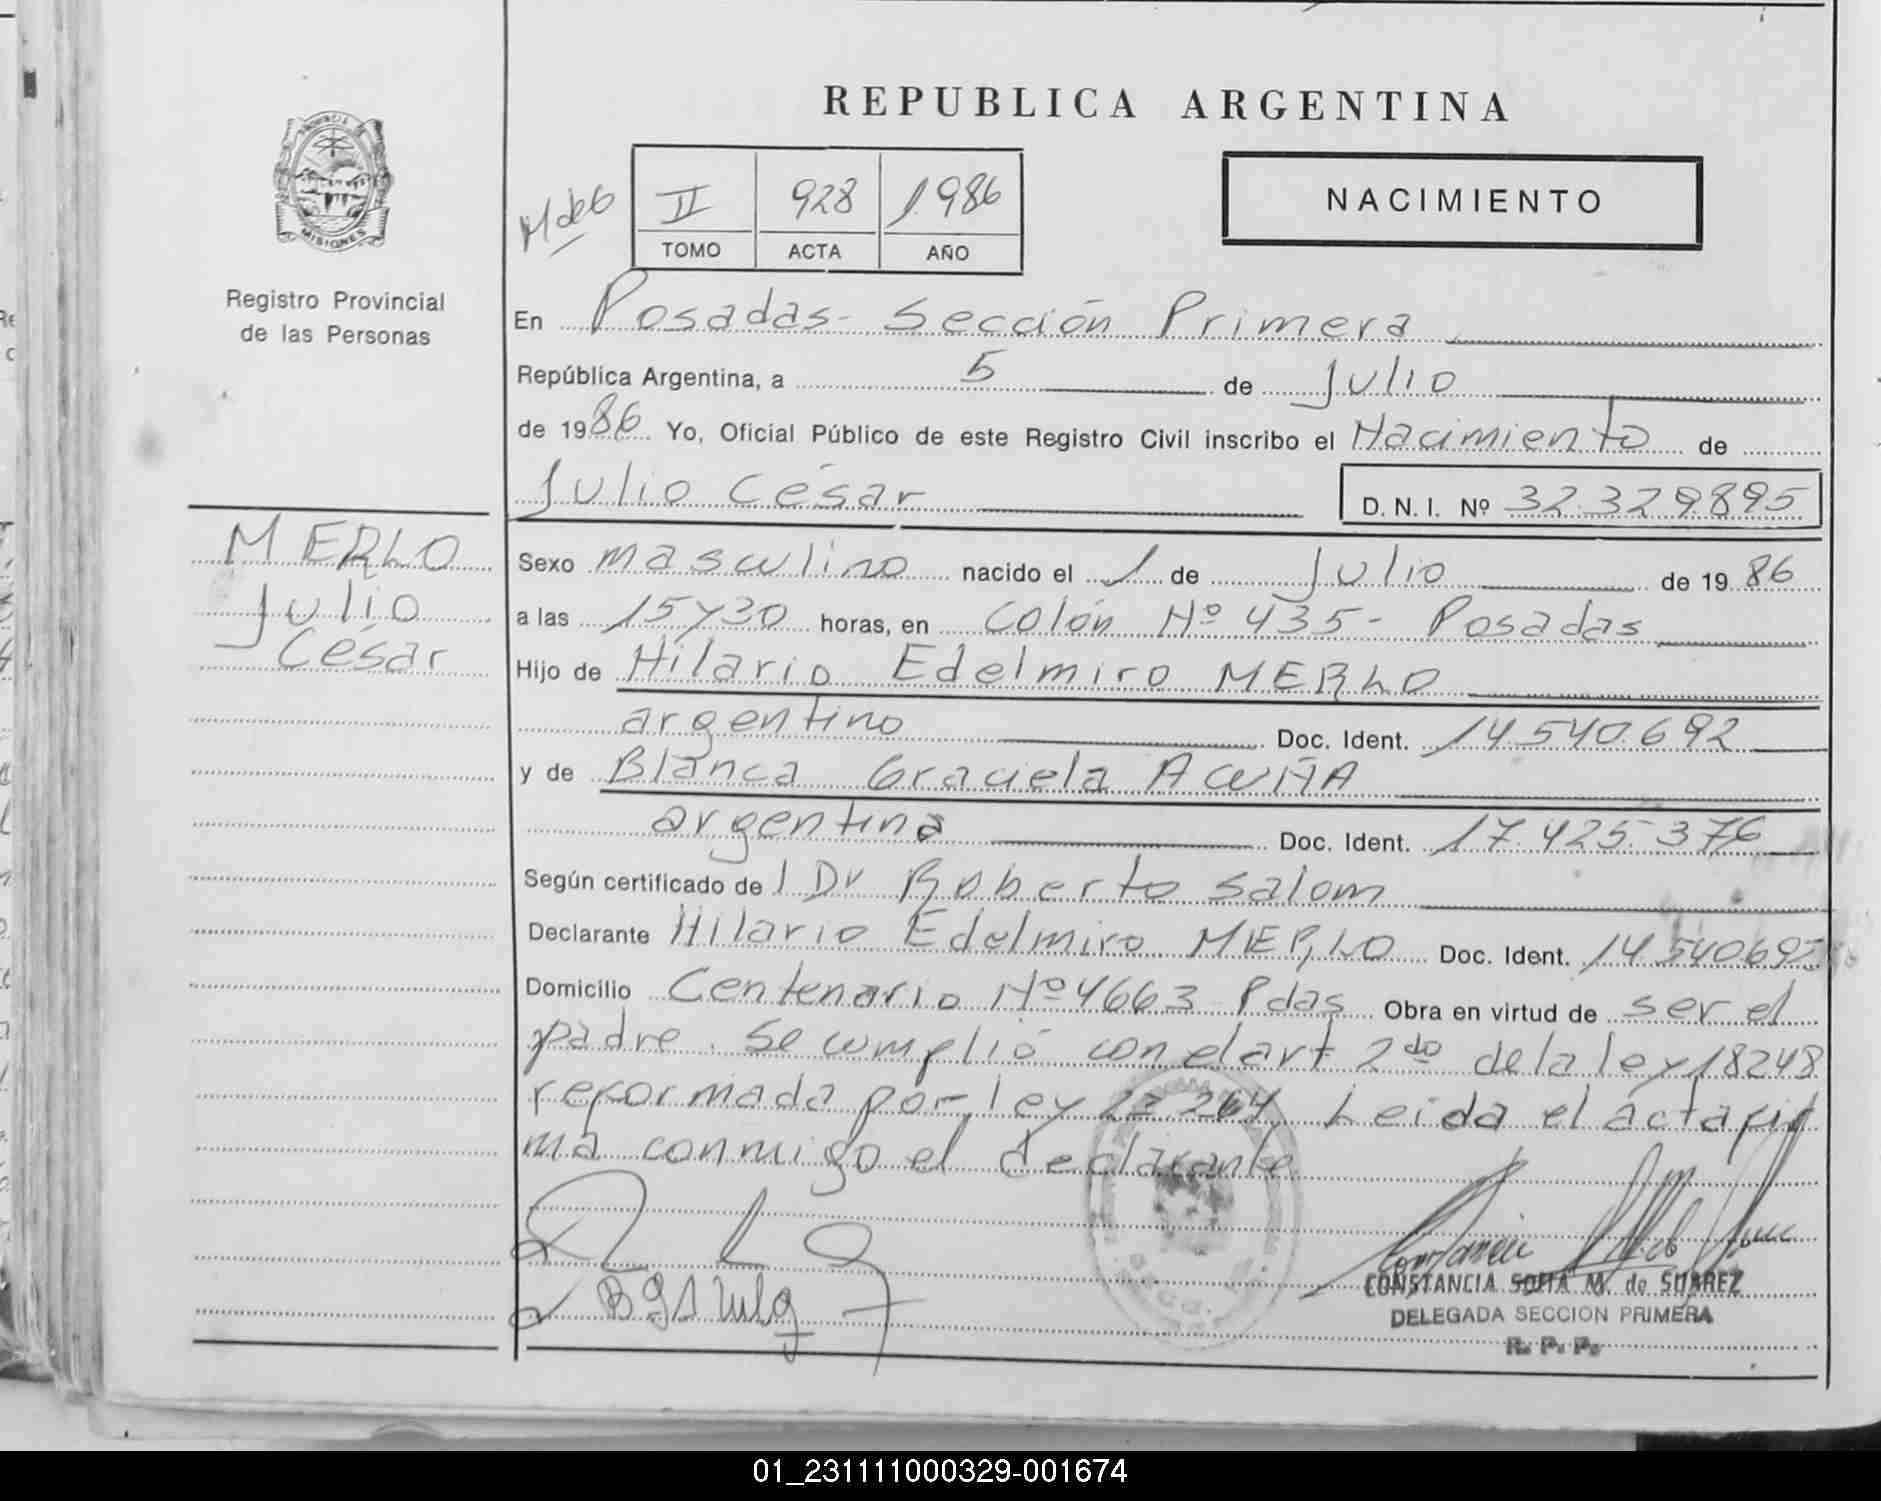 REPUBLICA ARGENTINA
PROVINCIA DE
MISIONES
Registro Provincial
de las Personas
II 928 1.986
TOMO ACTA AÑO
NACIMIENTO
En Posadas- Sección Primera
República Argentina, a 5 de Julio
de 1986 Yo, Oficial Público de este Registro Civil inscribo el Nacimiento de
Julio César D. N. I. Nº 32.329.895
MERLO
Julio
César
Sexo masculino nacido el 1 de Julio de 19 86
a las 15y30 horas, en Colón Nº 435- Posadas
Hijo de Hilario Edelmiro MERLO
argentino Doc. Ident. 14.540.692
y de Blanca Graciela ACUÑA
argentina Doc. Ident. 17.425.376
Según certificado del Dr Roberto Salom
Declarante Hilario Edelmiro MERLO Doc. Ident. 14.540.692
Domicilio Centenario Nº 4663 Pdas Obra en virtud de ser el
padre. Se cumplió con el art 2do de la ley 18248
reformada por ley 22264 Leida el acta fir
ma conmigo el declarante
CONSTANCIA SOFIA M. de SUAREZ
DELEGADA SECCION PRIMERA
R. P. P.
01_231111000329-001674